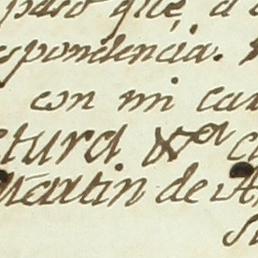 paso que, a
spondencia.
con mi ca
ctura &ª c
Martin de A